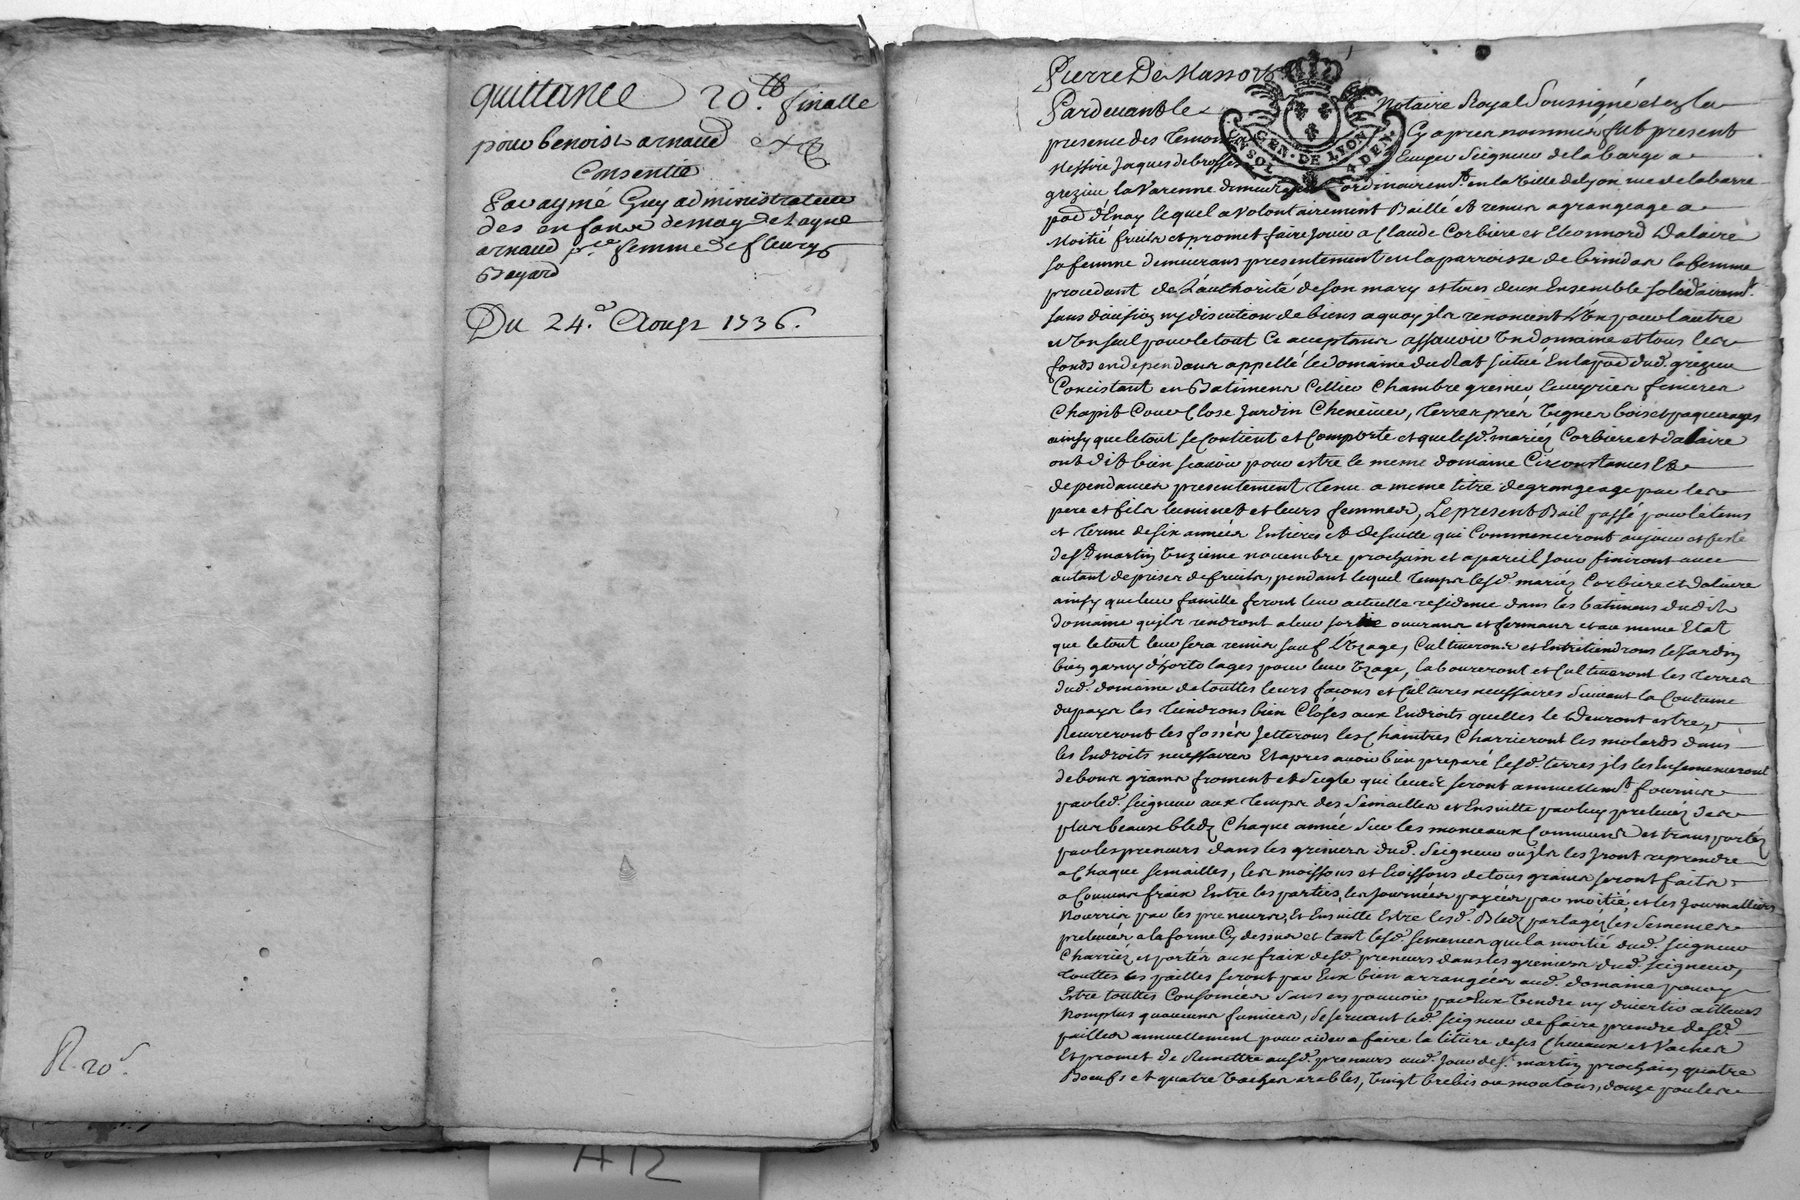 quittance 20.lb finalle
pour benoist arnaud
Consentie
Par aymé Guy administrateur
des enfans de
arnaud femme de fleury
Bayard
Du 24.e Aoust 1736.
R. 20s.
A12
Pierre De Masso
Pardevant le Notaire Royal Soussigné et en la
presence des Temoins Cy apres nommés fut present
Messire Jaques de brosses Ecuyer Seigneur de la barge a
GEN. DE LYON
grezieu la Varenne demeurant ordinairemt. en la Ville de Lyon rue de la barre
parr. d'Enay lequel a Volontairement Baillé et remis a grangeage a
Moitié fruits et promet faire Jouir a Claude Corbiere et Eleonnord Dalaire
sa femme demeurans presentement en la parroisse de brindas la femme
procedant de L'authorité de son mary et tous deux Ensemble solidairemt.
sans division ny discution de biens a quoy ils renoncent L'un pour l'autre
et Un seul pour le tout Ce acceptans assavoir Un domaine et tous les
fonds en dependans appellé le domaine du situé En la parr. dud. grezieu
Concistant en Batimens Cellier Chambre grenier Ecuyries fenieres
Chapit Cour Close Jardin Chenevier, Terres, prés Vignes bois et paquerages
ainsy que le tout se Contient et Comporte et que lesd. mariez Corbiere et dalaire
ont dit bien scavoir pour estre le meme domaine Circonstances Et
dependances presentement Tenu a meme titre de grangeage par les
pere et fils luminet et leurs femmes, Le present Bail passé pour le tems
et Terme de six années Entieres et de suitte qui Commenceront au jour et feste
de St. martin Unzieme novembre prochain et a pareil Jour finiront avec
autant de prises de fruits, pendant lequel Temps lesd. mariez Corbiere et dalaire
ainsy que leur famille feront leur actuelle residence dans les batimens dudit
domaine qu'ils rendront a leur sortie ouvrans et fermans et au meme Etat
que le tout leur sera remis sauf L'Uzage, Cultiveront et Entretiendrons le Jardin
bien garny d'hortolages pour leur Uzage, laboureront et Cultiveront les Terres
dud. domaine de touttes leurs façons et Cultures necessaires Suivant la Coutume
du pays les Tiendrons bien Closes aux Endroits quelles le Devront estre
Recureront les fossés Jetterons les Chaintres Charrieront les molards dans
les Endroits necessaires Et apres avoir bien preparé lesd. terres ils les Ensemenceront
de bons grains froment et Seigle qui leurs seront annuellemt. fournis
par led. seigneur aux Temps des Semailles et Ensuitte par luy prelevez des
plus beaux bledz Chaque année Sur les monceaux Communs et transportés
par les preneurs dans les greniers dud. Seigneur ou ils les Iront reprendre
a Chaque semailles, les moissons et Escossons de tous grains seront faits
a Communs fraix Entre les parties, les Journées payées par moitié, et les Journalliers
Nourris par les preneurs, Et Ensuitte Estre lesd. Bledz partagéz les Semences
prelevées a la forme Cy dessus et tant lesd. semences que la moitié dud. seigneur
Charriéz et portés aux fraix desd. preneurs dans les greniers dud. seigneur,
Touttes les pailles seront par Eux bien arrangées aud. domaine pour y
Estre touttes Consomées sans en pouvoir par Eux Vendre ny divertir ailleurs
Nomplus qu'aucuns fumiers, se reservant led. seigneur de faire prendre desd.
pailles annuellement pour aider a faire la litiere de ses Chevaux et Vaches
Et promet de Remettre ausd. preneurs aud. Jour de St. martin prochain quatre
Boeufs et quatre Vaches arables, Vingt brebis ou moutons, douze poules